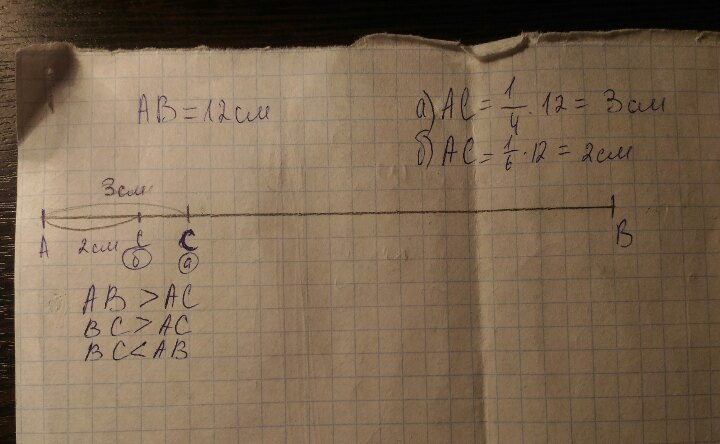 AB = 12 см
а) AC = 1/4 · 12 = 3 см
б) AC = 1/6 · 12 = 2 см
3 см
A 2 см C C B
б а
AB > AC
BC > AC
BC < AB